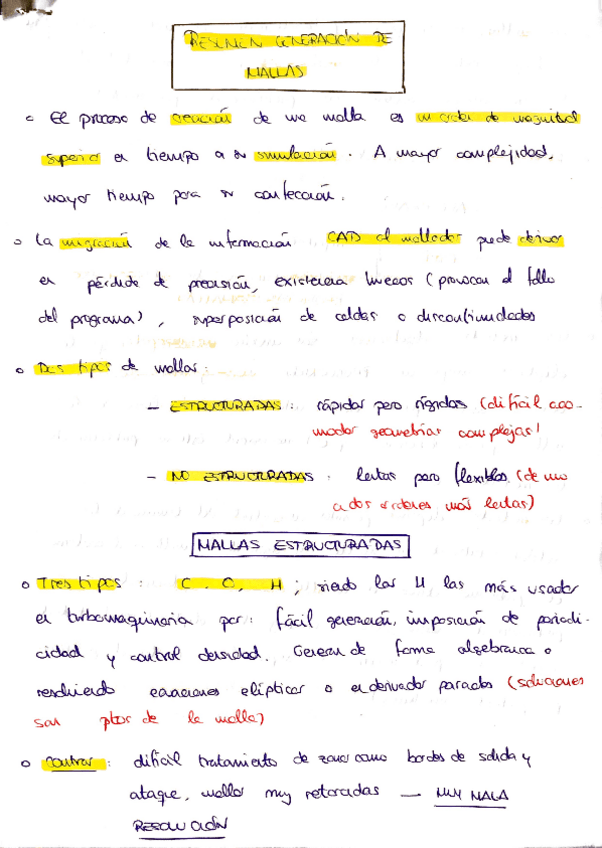 RESUMEN GENERACIÓN DE
MALLAS
El proceso de creación de una malla es un orden de magnitud
superior en tiempo a su simulación. A mayor complejidad,
mayor tiempo para su confección.
La migración de la información CAD al mallador puede derivar
en pérdida de precisión, existencia huecos (provocan el fallo
del programa), superposición de celdas o discontinuidades
Dos tipos de mallas:
- ESTRUCTURADAS: rápidas pero rígidas (difícil aco-
modar geometrías complejas)
- NO ESTRUCTURADAS: lentas pero flexibles (de uno
a dos órdenes más lentas)
MALLAS ESTRUCTURADAS
Tres tipos: C, O, H, siendo las H las más usadas
en turbomaquinaria por: fácil generación, imposición de periodi-
cidad y control densidad. Generan de forma algebraica o
resolviendo ecuaciones elípticas o en derivadas parciales (soluciones
son ptos de la malla)
Contras: difícil tratamiento de zonas como bordes de salida y
ataque, mallas muy retorcidas — MUY MALA
RESOLUCIÓN